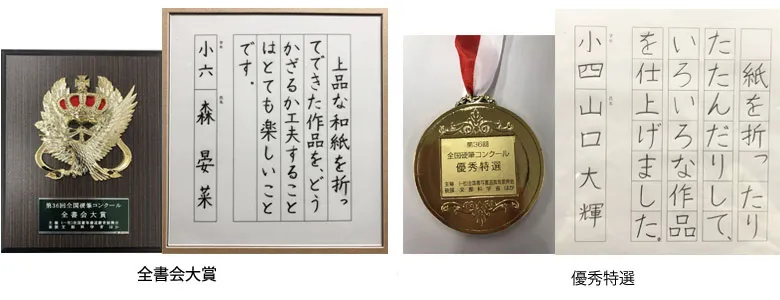 第36回全国硬筆コンクール
全書会大賞
上品な和紙を折っ
てできた作品を、どう
かざるか工夫すること
はとても楽しいこと
です。
小六 森 晏菜
全書会大賞
第36回
全国硬筆コンクール
優秀特選
紙を折ったり
たたんだりして、
いろいろな作品
を仕上げました。
小四 山口大輝
優秀特選